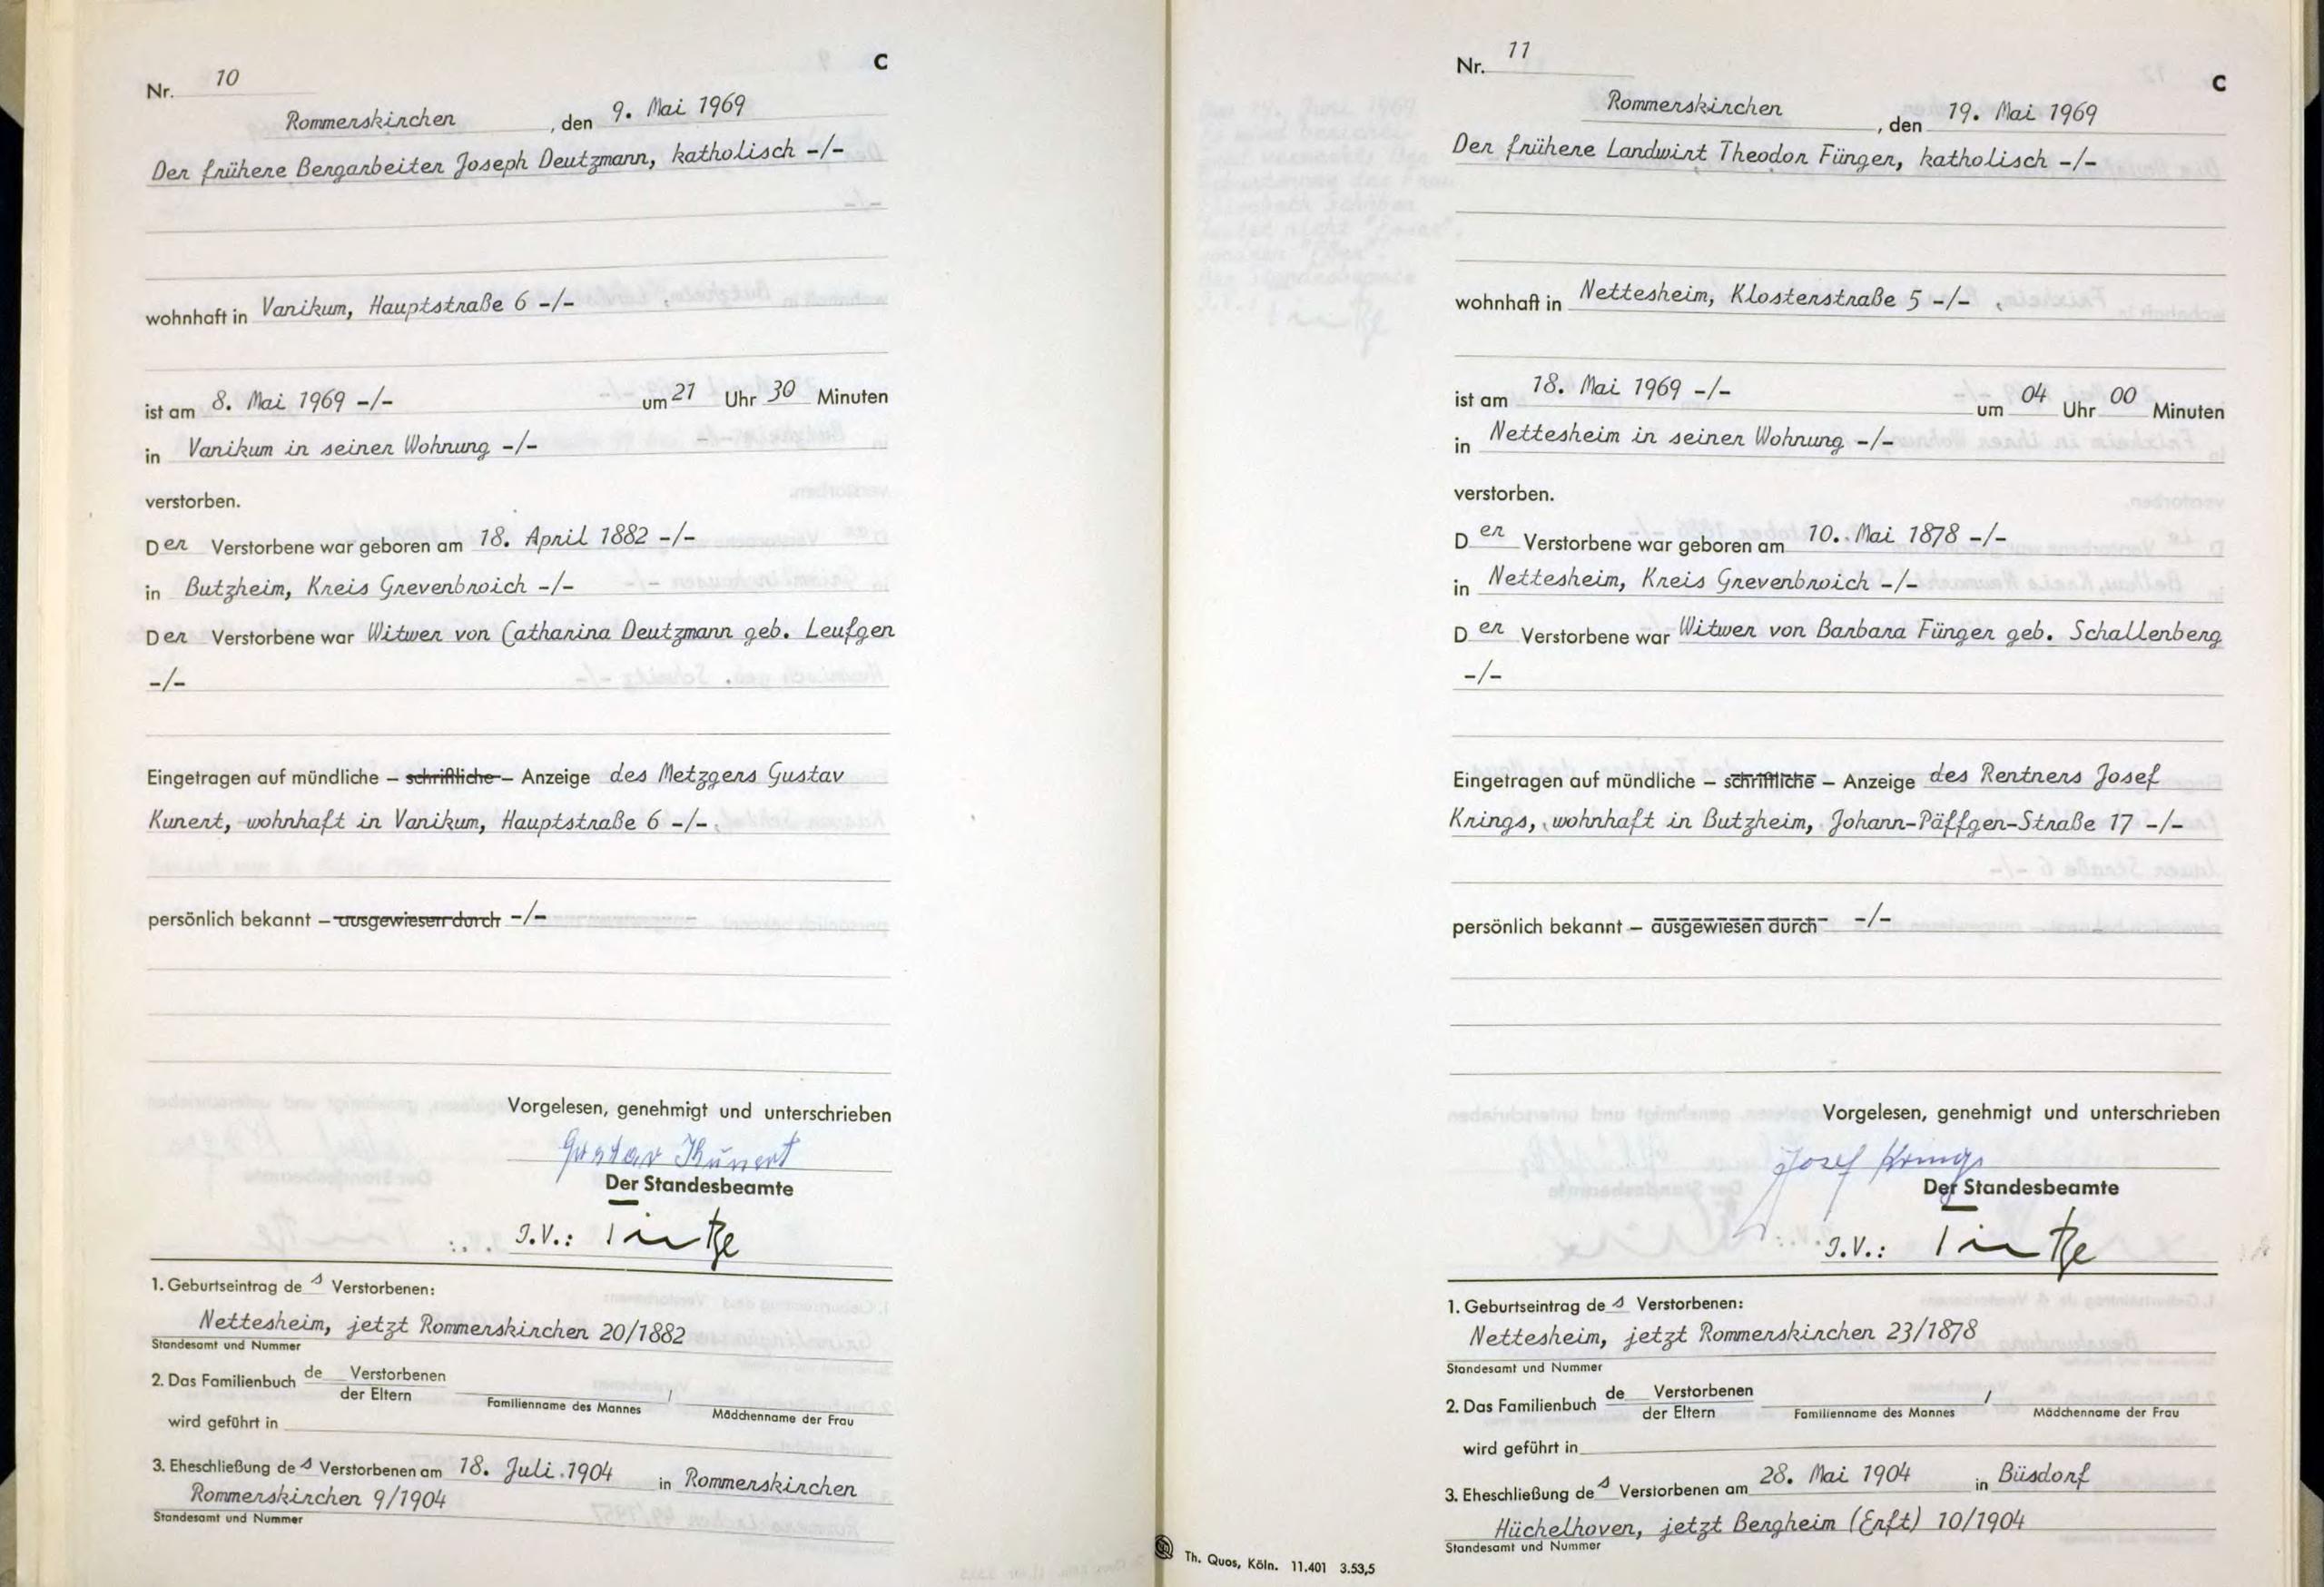 C
Nr. 10
Rommerskirchen, den 9. Mai 1969
Der frühere Bergarbeiter Joseph Deutzmann, katholisch -/-
wohnhaft in Vanikum, Hauptstraße 6 -/-
ist am 8. Mai 1969 -/- um 21 Uhr 30 Minuten
in Vanikum in seiner Wohnung -/-
verstorben.
Der Verstorbene war geboren am 18. April 1882 -/-
in Butzheim, Kreis Grevenbroich -/-
Der Verstorbene war Witwer von Catharina Deutzmann geb. Leufgen
-/-
Eingetragen auf mündliche – schriftliche – Anzeige des Metzgers Gustav
Kunert, wohnhaft in Vanikum, Hauptstraße 6 -/-
persönlich bekannt – ausgewiesen durch -/-
Vorgelesen, genehmigt und unterschrieben
Gustav Kunert
Der Standesbeamte
J.V.:
1. Geburtseintrag des Verstorbenen:
Nettesheim, jetzt Rommerskirchen 20/1882
Standesamt und Nummer
2. Das Familienbuch de Verstorbenen
der Eltern
/
Familienname des Mannes Mädchenname der Frau
wird geführt in
3. Eheschließung des Verstorbenen am 18. Juli 1904 in Rommerskirchen
Rommerskirchen 9/1904
Standesamt und Nummer
Nr. 11
C
Rommerskirchen, den 19. Mai 1969
Der frühere Landwirt Theodor Fünger, katholisch -/-
wohnhaft in Nettesheim, Klosterstraße 5 -/-
ist am 18. Mai 1969 -/- um 04 Uhr 00 Minuten
in Nettesheim in seiner Wohnung -/-
verstorben.
Der Verstorbene war geboren am 10. Mai 1878 -/-
in Nettesheim, Kreis Grevenbroich -/-
Der Verstorbene war Witwer von Barbara Fünger geb. Schallenberg
-/-
Eingetragen auf mündliche – schriftliche – Anzeige des Rentners Josef
Krings, wohnhaft in Butzheim, Johann-Päffgen-Straße 17 -/-
persönlich bekannt – ausgewiesen durch -/-
Vorgelesen, genehmigt und unterschrieben
Josef Krings
Der Standesbeamte
J.V.:
1. Geburtseintrag des Verstorbenen:
Nettesheim, jetzt Rommerskirchen 23/1878
Standesamt und Nummer
2. Das Familienbuch de Verstorbenen
der Eltern
/
Familienname des Mannes Mädchenname der Frau
wird geführt in
3. Eheschließung des Verstorbenen am 28. Mai 1904 in Büsdorf
Hüchelhoven, jetzt Bergheim (Erft) 10/1904
Standesamt und Nummer
Th. Quos, Köln. 11.401 3.53,5